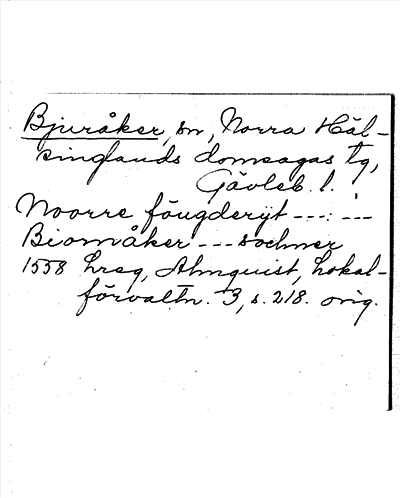 Bjuråker, sn, Norra Häl-
singlands domsagas tg,
Gävleb. l.
Noorre fougderijt ---: ---
Biornåker --- sochner
1558 hreg, Almquist, Lokal-
förvaltn. 3, s. 218. orig.